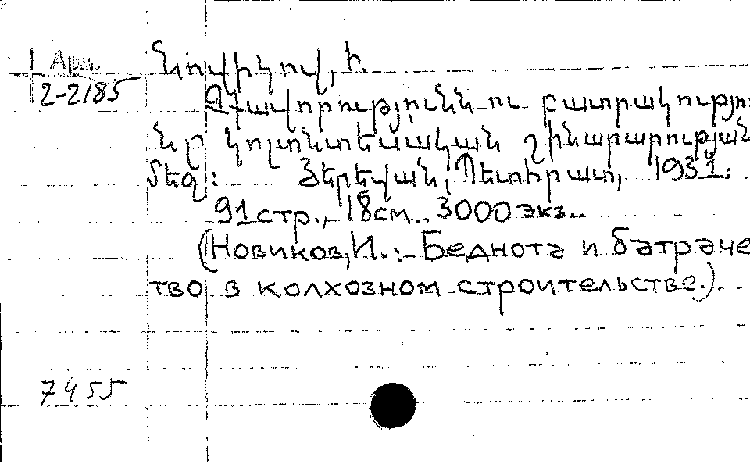 Арм.
2-2185
Նովիկով, Ի.
Չքավորությունն ու բատրակությու
նը կոլտնտեսական շինարարության
մեջ: Յերեվան, Պետհրատ, 1931.
91 стр., 18 см. 3000 экз.
(Новиков, И.: Беднота и батраче
тво в колхозном строительстве.).
7455